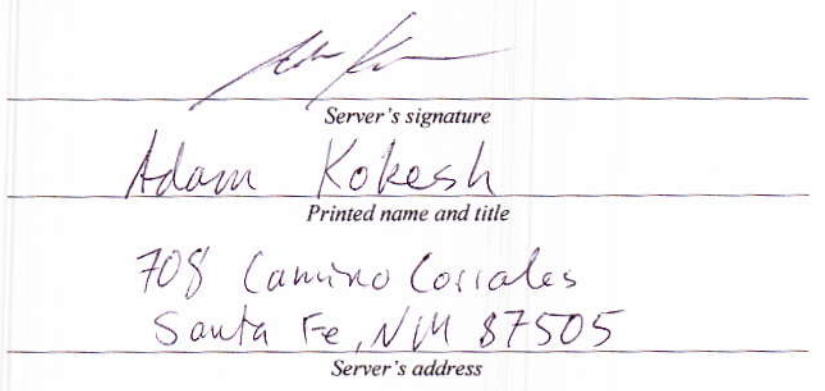 Server's signature
Adam Kokesh
Printed name and title
708 Camino Corrales
Santa Fe, NM 87505
Server's address